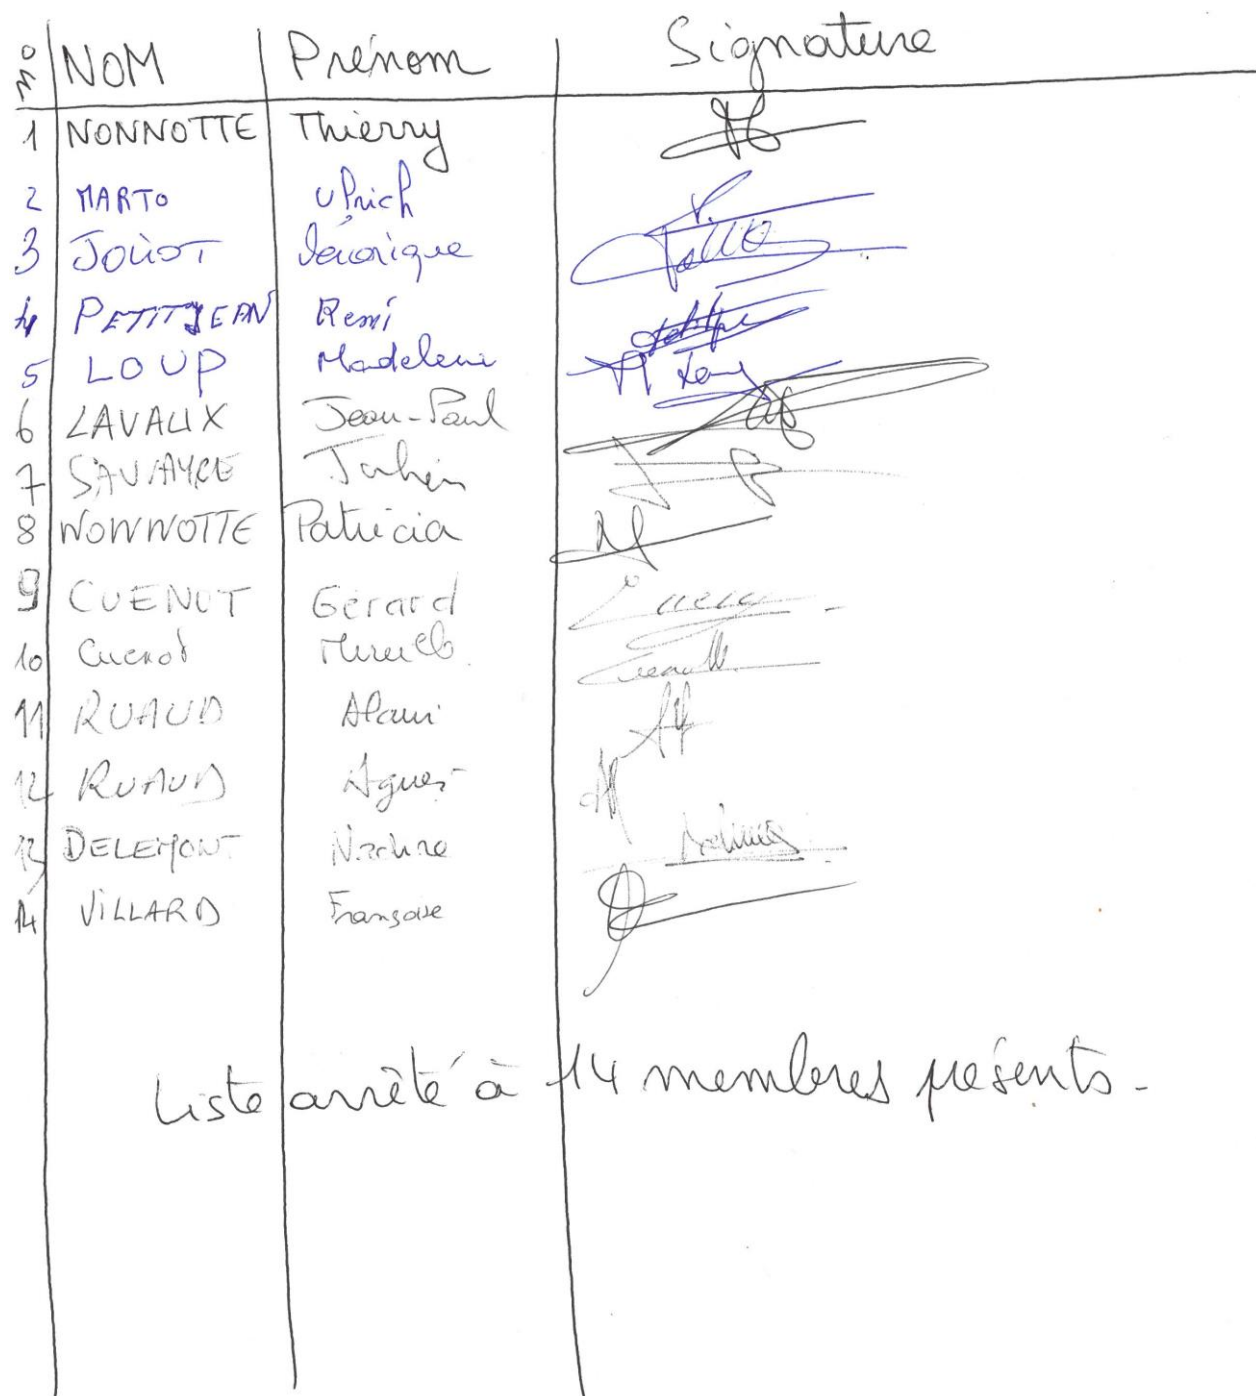 N° NOM Prénom Signature
1 NONNOTTE Thierry
2 MARTO Ulrich
3 JOLIOT Véronique
4 PETITJEAN Remi
5 LOUP Madeleine
6 LAVAUX Jean-Paul
7 Julien
8 NONNOTTE Patricia
9 CUENOT Gérard
10 Cuenot
11 RUAUD Alain
12 RUAUD Agnes
13 DELEMONT Nadine
14 VILLARD Françoise
Liste arrêté à 14 membres présents.